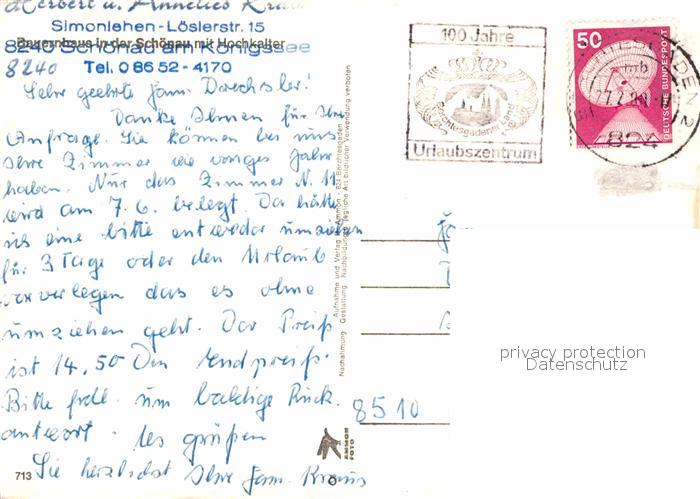 Herbert u. Annelies
Simonlehen - Löslerstr. 15
8240 Schönau am Königssee
Bauernhaus in der Schönau mit Hochkalter
8240
Tel. 0 86 52 - 4170
Sehr geehrte Fam. Drechsler!
Danke Ihnen für Ihre
Anfrage. Sie können bei uns
Ihre Zimmer wie voriges Jahr
haben. Nur das Zimmer N. 11
wird am 7. 6. belegt. Da hätte
ich eine bitte entweder umziehen
für 3 Tage oder den Urlaub
vorverlegen das es ohne
umziehen geht. Der Preiß
ist 14.50 Dm Endpreiß.
Bitte frdl. um baldige Rück.
antwort. Es grüßen
Sie herzlichst Ihre Fam. Kraus
713
Aufnahme und Verlag H. Ammon · 824 Berchtesgaden
Nachahmung Gestaltung Nachbildung Jegliche Art bildlicher Verwendung verboten
AMMON
FOTO
©
100 Jahre
Berchtesgadener Land
Urlaubszentrum
50
DEUTSCHE BUNDESPOST
824
8510
privacy protection
Datenschutz